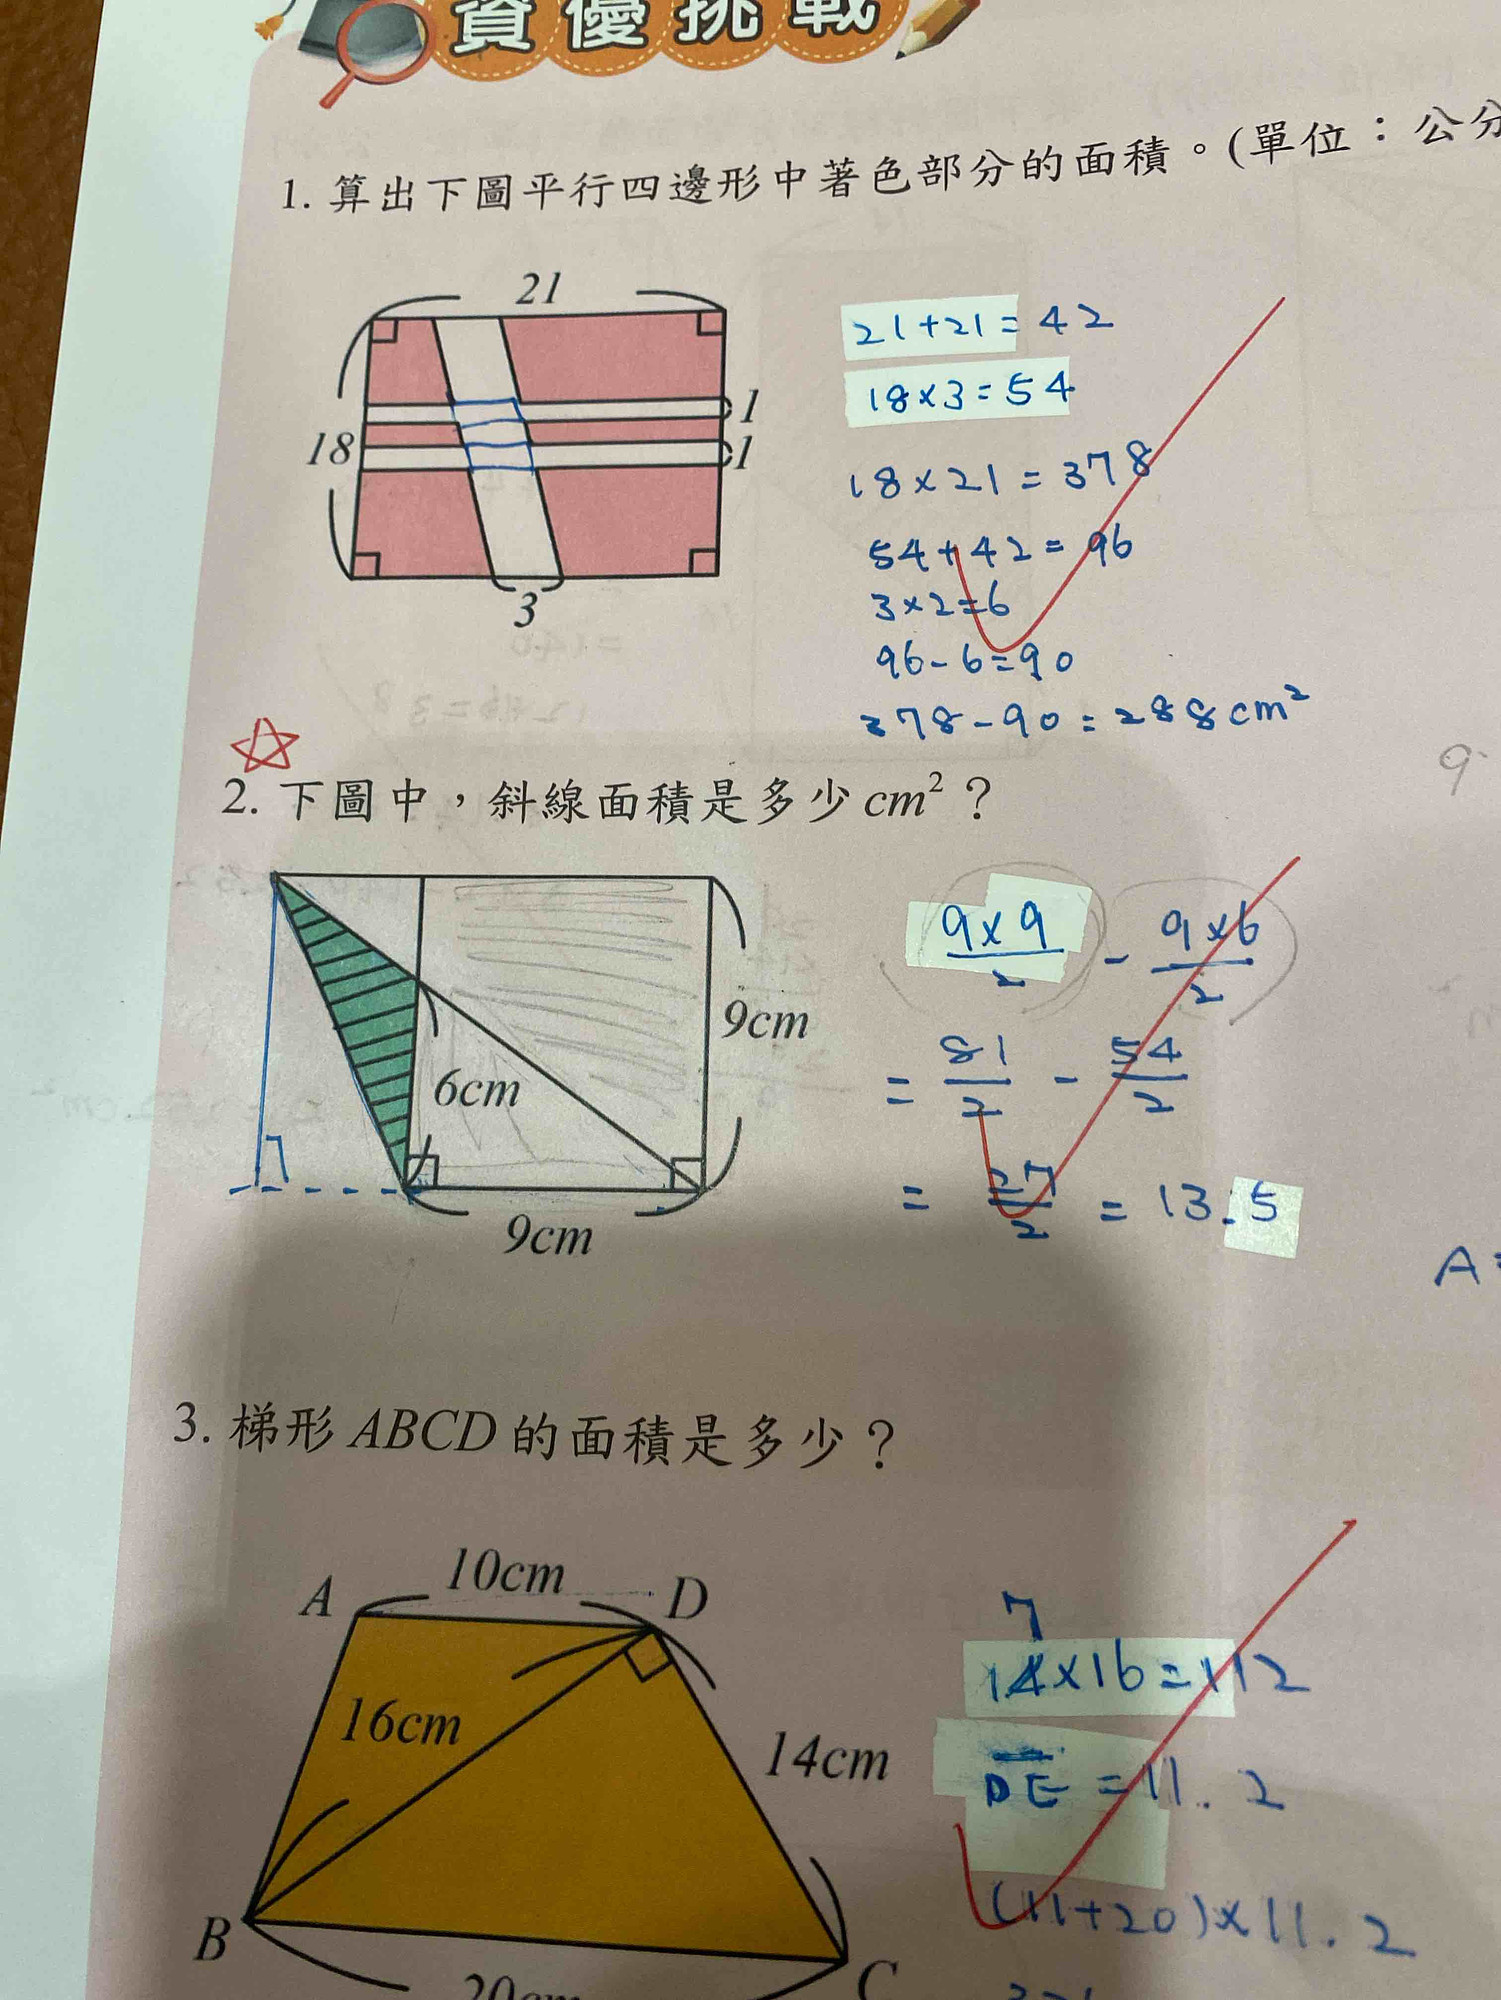 資優挑戰
1. 算出下圖平行四邊形中著色部分的面積。(單位：公分
21
18
1
1
3
21+21=42
18×3=54
18×21=378
54+42=96
3×2=6
96-6=90
378-90=288cm²
2. 下圖中，斜線面積是多少cm²？
9cm
6cm
9cm
9×9/2 - 9×6/2
= 81/2 - 54/2
= 27/2 = 13.5
9
A=
3. 梯形ABCD的面積是多少？
10cm
A
D
16cm
14cm
B
C
20cm
7
14×16=112
DE=11.2
(11+20)×11.2